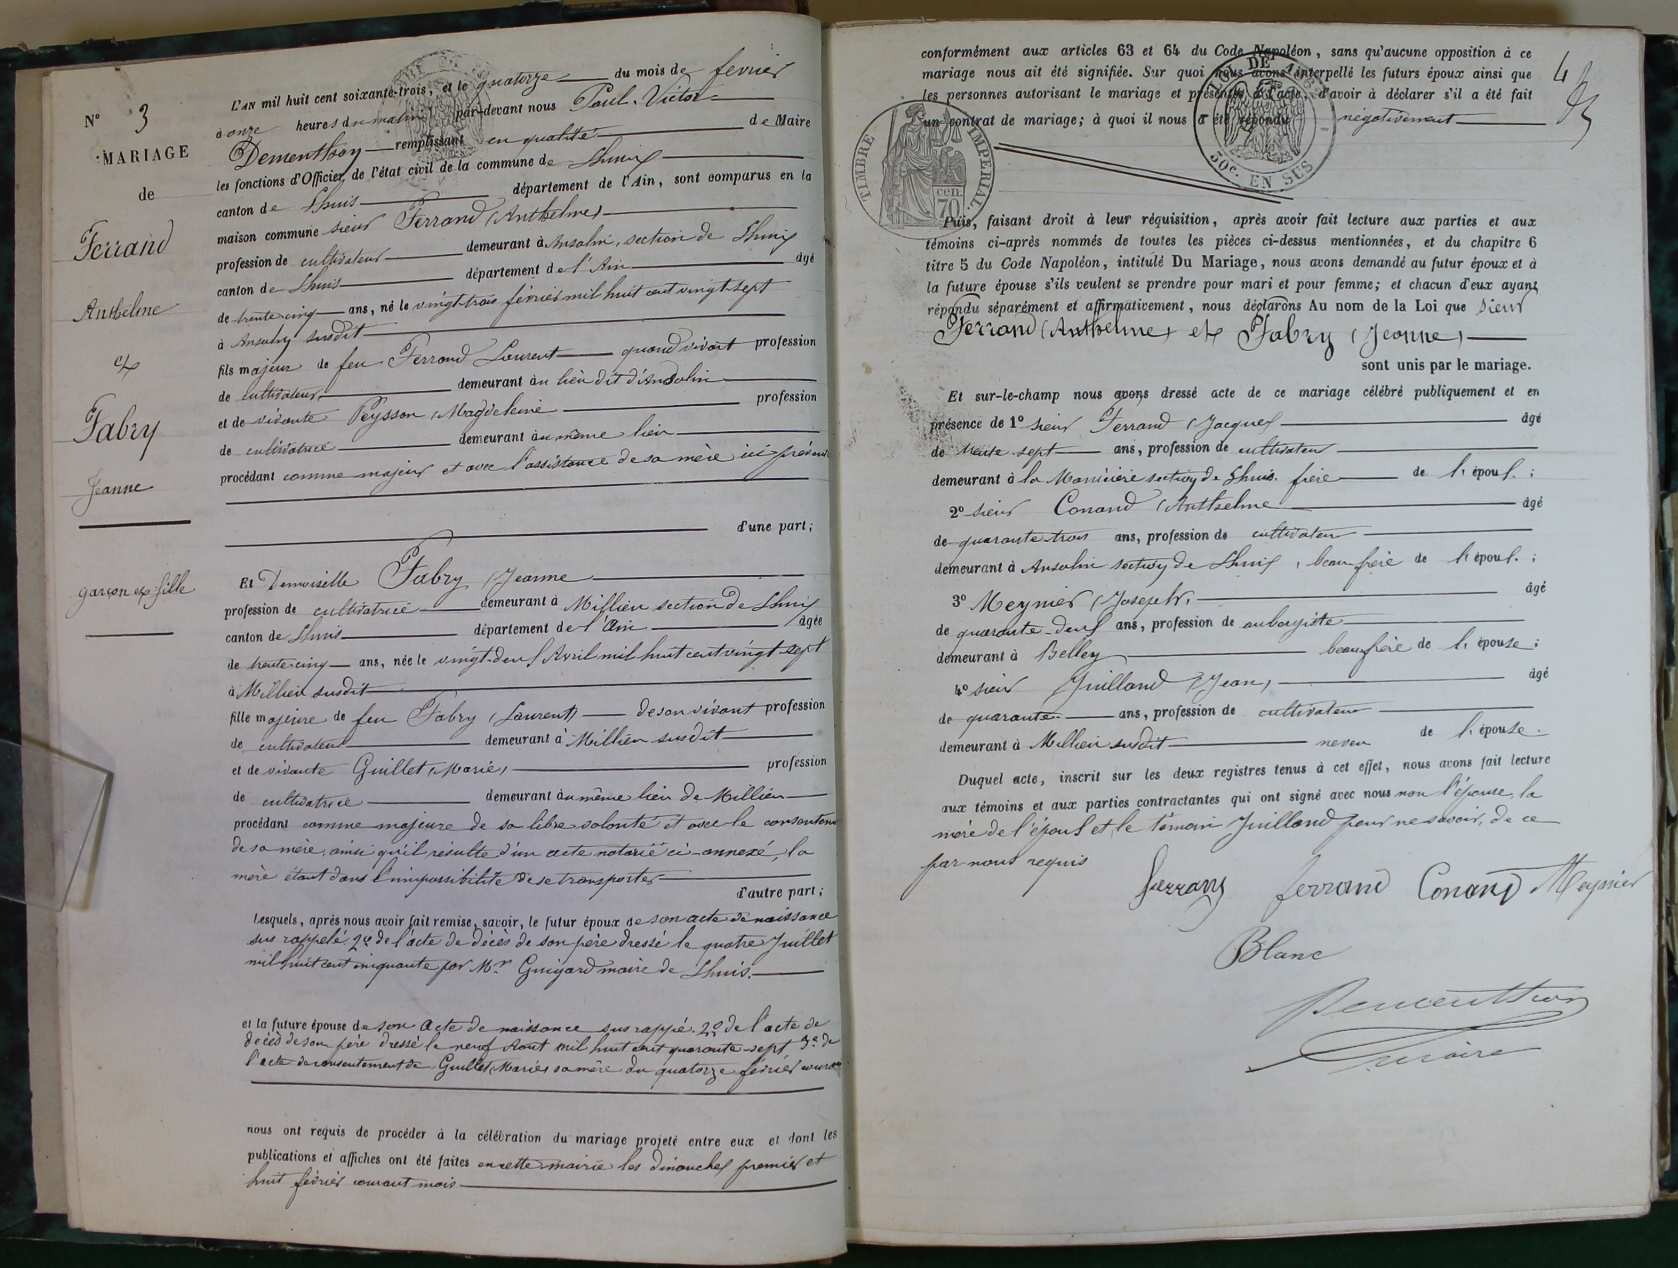 N° 3
MARIAGE
de
Ferrand
Anthelme
et
Fabry
Jeanne
garçon et fille
L'AN mil huit cent soixante-trois, et le quatorze du mois de février
à onze heures du matin par-devant nous Paul-Victor
Dementhon remplissant en qualité de Maire
les fonctions d'Officier de l'état civil de la commune de Lhuis
canton de Lhuis département de l'Ain, sont comparus en la
maison commune sieur Ferrand (Anthelme)
profession de cultivateur demeurant à Ansolin, section de Lhuis
canton de Lhuis département de l'Ain âgé
de trente cinq ans, né le vingt-trois février mil huit cent vingt-sept
à Ansolin susdit
fils majeur de feu Ferrand Laurent quand vivait profession
de cultivateur demeurant au lieu dit d'Ansolin
et de vivante Peysson (Magdeleine profession
de cultivatrice demeurant au même lieu
procédant comme majeur et avec l'assistance de sa mère ici présente
d'une part;
Et Demoiselle Fabry (Jeanne
profession de cultivatrice demeurant à Millieu section de Lhuis
canton de Lhuis département de l'Ain âgée
de trente-cinq ans, née le vingt-deux Avril mil huit cent vingt-sept
à Millieu susdit
fille majeure de feu Fabry (Laurent) de son vivant profession
de cultivateur demeurant à Millieu susdit
et de vivante Guillet (Marie) profession
de cultivatrice demeurant au même lieu de Millieu
procédant comme majeure de sa libre volonté et avec le consentement
de sa mère, ainsi qu'il résulte d'un acte notarié ci-annexé, la
mère étant dans l'impossibilité de se transporter
d'autre part;
Lesquels, après nous avoir fait remise, savoir, le futur époux de son acte de naissance
sus rappelé 2° de l'acte de décès de son père dressé le quatre Juillet
mil huit cent cinquante par Mr Guigard maire de Lhuis.
et la future épouse de son acte de naissance sus rappé. 2° de l'acte de
décès de son père dressé le neuf Aout mil huit cent quarante-sept 3° de
l'acte de consentement de Guillet (Marie) sa mère du quatorze février courant
nous ont requis de procéder à la célébration du mariage projeté entre eux et dont les
publications et affiches ont été faites en cette mairie les dimanches premier et
huit février courant mois
4
conformément aux articles 63 et 64 du Code Napoléon, sans qu'aucune opposition à ce
mariage nous ait été signifiée. Sur quoi nous avons interpellé les futurs époux ainsi que
les personnes autorisant le mariage et présentes à l'acte, d'avoir à déclarer s'il a été fait
un contrat de mariage; à quoi il nous a été répondu négativement
TIMBRE IMPÉRIAL
70 cen.
50c. EN SUS
Puis, faisant droit à leur réquisition, après avoir fait lecture aux parties et aux
témoins ci-après nommés de toutes les pièces ci-dessus mentionnées, et du chapitre 6
titre 5 du Code Napoléon, intitulé Du Mariage, nous avons demandé au futur époux et à
la future épouse s'ils veulent se prendre pour mari et pour femme; et chacun d'eux ayant
répondu séparément et affirmativement, nous déclarons Au nom de la Loi que sieur
Ferrand (Anthelme) et Fabry (Jeanne)
sont unis par le mariage.
Et sur-le-champ nous avons dressé acte de ce mariage célébré publiquement et en
présence de 1° sieur Ferrand (Jacques âgé
de trente sept ans, profession de cultivateur
demeurant à la Manicière section de Lhuis. frère de l'époux;
2° sieur Conand (Anthelme âgé
de quarante-trois ans, profession de cultivateur
demeurant à Ansolin section de Lhuis, beau frère de l'époux;
3° Meynier (Joseph) âgé
de quarante-deux ans, profession de aubergiste
demeurant à Belley beau frère de l'épouse;
4° sieur Juilland (Jean) âgé
de quarante ans, profession de cultivateur
demeurant à Millieu susdit neveu de l'épouse.
Duquel acte, inscrit sur les deux registres tenus à cet effet, nous avons fait lecture
aux témoins et aux parties contractantes qui ont signé avec nous non l'épouse, la
mère de l'époux et le témoin Juilland pour ne savoir, de ce
par nous requis
ferrand ferrand Conand Meynier
Blanc
Dementhon
maire